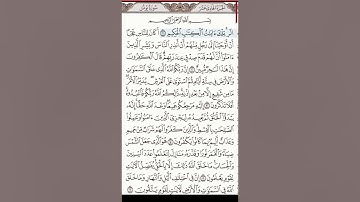 الجزء الحادي عشر سورة يونس
بِسۡمِ ٱللَّهِ ٱلرَّحۡمَٰنِ ٱلرَّحِيمِ
الٓرۚ تِلۡكَ ءَايَٰتُ ٱلۡكِتَٰبِ ٱلۡحَكِيمِ ١ أَكَانَ لِلنَّاسِ عَجَبًا
أَنۡ أَوۡحَيۡنَآ إِلَىٰ رَجُلٖ مِّنۡهُمۡ أَنۡ أَنذِرِ ٱلنَّاسَ وَبَشِّرِ ٱلَّذِينَ
ءَامَنُوٓاْ أَنَّ لَهُمۡ قَدَمَ صِدۡقٍ عِندَ رَبِّهِمۡۗ قَالَ ٱلۡكَٰفِرُونَ
إِنَّ هَٰذَا لَسَٰحِرٞ مُّبِينٌ ٢ إِنَّ رَبَّكُمُ ٱللَّهُ ٱلَّذِي خَلَقَ ٱلسَّمَٰوَٰتِ
وَٱلۡأَرۡضَ فِي سِتَّةِ أَيَّامٖ ثُمَّ ٱسۡتَوَىٰ عَلَى ٱلۡعَرۡشِۖ يُدَبِّرُ ٱلۡأَمۡرَۖ
مَا مِن شَفِيعٍ إِلَّا مِنۢ بَعۡدِ إِذۡنِهِۦۚ ذَٰلِكُمُ ٱللَّهُ رَبُّكُمۡ فَٱعۡبُدُوهُۚ
أَفَلَا تَذَكَّرُونَ ٣ إِلَيۡهِ مَرۡجِعُكُمۡ جَمِيعٗاۖ وَعۡدَ ٱللَّهِ حَقًّاۚ إِنَّهُۥ
يَبۡدَؤُاْ ٱلۡخَلۡقَ ثُمَّ يُعِيدُهُۥ لِيَجۡزِيَ ٱلَّذِينَ ءَامَنُواْ وَعَمِلُواْ
ٱلصَّٰلِحَٰتِ بِٱلۡقِسۡطِۚ وَٱلَّذِينَ كَفَرُواْ لَهُمۡ شَرَابٞ مِّنۡ حَمِيمٖ
وَعَذَابٌ أَلِيمُۢ بِمَا كَانُواْ يَكۡفُرُونَ ٤ هُوَ ٱلَّذِي جَعَلَ ٱلشَّمۡسَ
ضِيَآءٗ وَٱلۡقَمَرَ نُورٗا وَقَدَّرَهُۥ مَنَازِلَ لِتَعۡلَمُواْ عَدَدَ ٱلسِّنِينَ
وَٱلۡحِسَابَۚ مَا خَلَقَ ٱللَّهُ ذَٰلِكَ إِلَّا بِٱلۡحَقِّۚ يُفَصِّلُ ٱلۡأٓيَٰتِ
لِقَوۡمٖ يَعۡلَمُونَ ٥ إِنَّ فِي ٱخۡتِلَٰفِ ٱلَّيۡلِ وَٱلنَّهَارِ وَمَا خَلَقَ
ٱللَّهُ فِي ٱلسَّمَٰوَٰتِ وَٱلۡأَرۡضِ لَأٓيَٰتٖ لِّقَوۡمٖ يَتَّقُونَ ٦